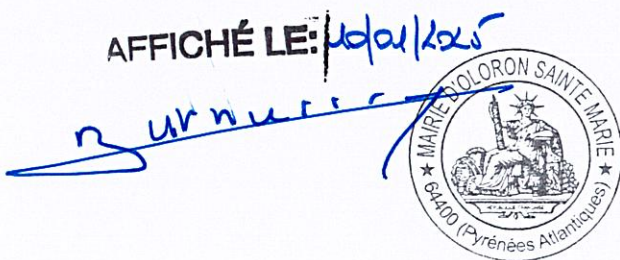 AFFICHÉ LE: 10/01/2025
MAIRIE D'OLORON SAINTE MARIE
64400 (Pyrénées Atlantiques)